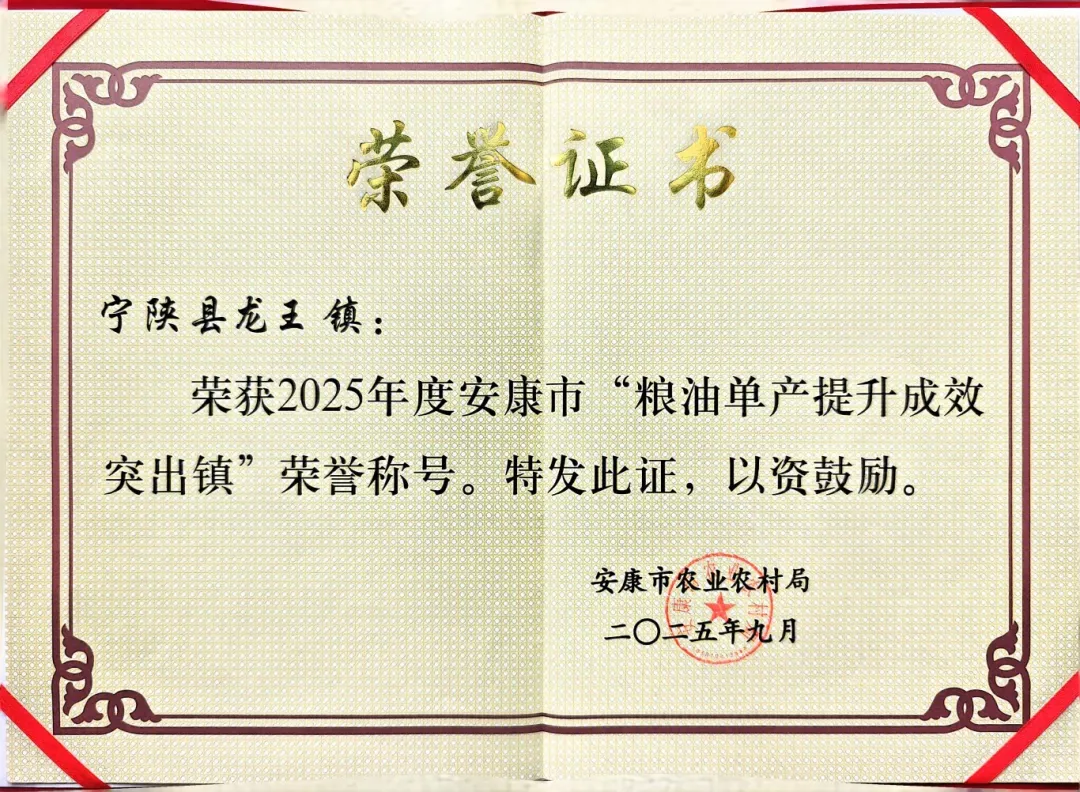 荣誉证书
宁陕县龙王镇：
荣获2025年度安康市“粮油单产提升成效
突出镇”荣誉称号。特发此证，以资鼓励。
安康市农业农村局
二〇二五年九月